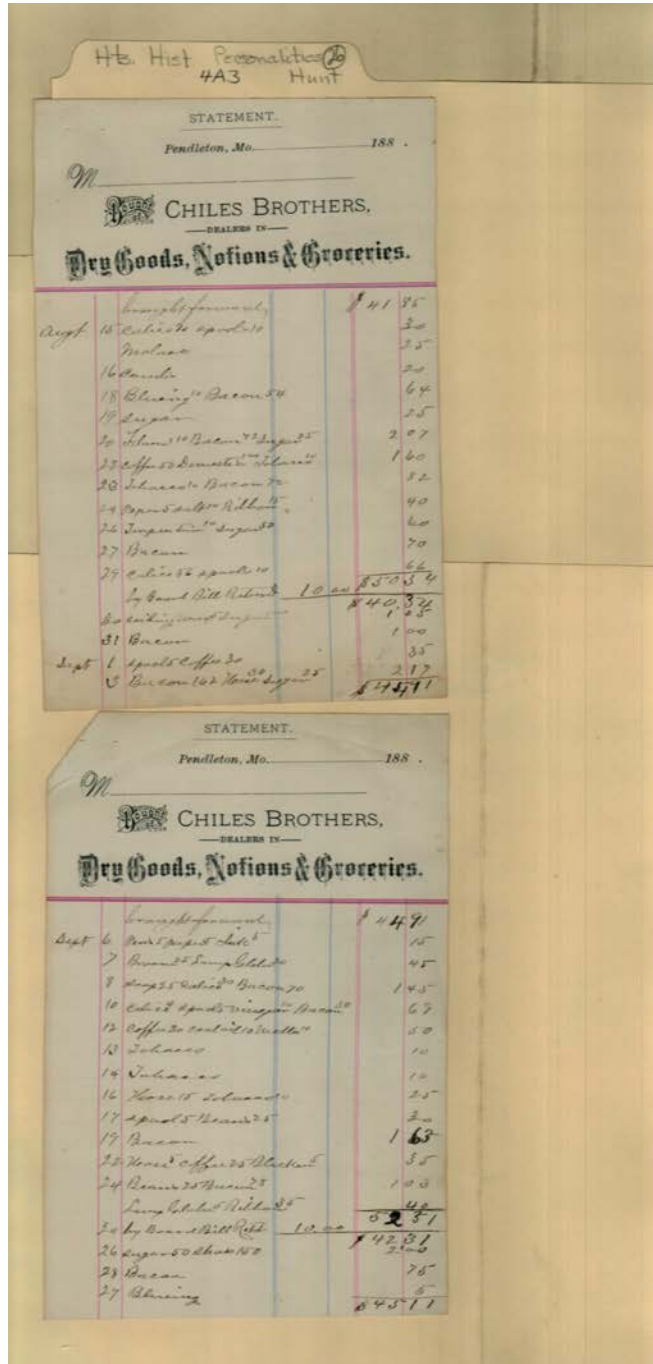 Hts. Hist Personalities 26
4A3 Hunt
STATEMENT.
Pendleton, Mo. 188 .
M
Bought of CHILES BROTHERS,
DEALERS IN
Dry Goods, Notions & Groceries.
brought forward $ 41 85
Augt 15 Calico 20 spools 10 30
25
16 20
18 Bluing 10 Bacon 54 64
19 Sugar 25
20 Bacon Sugar 25 2 07
23 Coffee 50 Tobacco 1 60
23 Tobacco 10 Bacon 72 82
24 Paper 5 salts Ribbon 15 40
26 Sugar 50 60
27 Bacon 70
29 Calico 56 spools 10 66
$ 50 34
by Board Bill 10.00 $ 40.34
30 1 05
31 Bacon 1 00
Sept 1 spool 5 Coffee 30 35
3 Bacon 162 Hose 30 Sugar 25 2 17
$ 44 91
STATEMENT.
Pendleton, Mo. 188 .
M
Bought of CHILES BROTHERS,
DEALERS IN
Dry Goods, Notions & Groceries.
brought forward $ 44 91
Sept 6 Pens 5 paper 5 Ink 5 15
7 Lamp Globe 20 45
8 soap 25 Calico 50 Bacon 70 1 45
10 Calico spools vinegar Bacon 69
12 Coffee 20 coal oil 10 50
13 Tobacco 10
14 Tobacco 10
16 Hose 15 Tobacco 10 25
17 spool 5 Beans 25 30
19 Bacon 1 63
22 Coffee 25 5 35
24 Beans 25 Bacon 78 1 03
Lamp Globe 5 Ribbon 35 40
52 31
30 by Board Bill 10.00 $ 42 31
26 sugar 50 shoes 150 2 00
28 Bacon 75
27 Bluing 5
$ 45 11